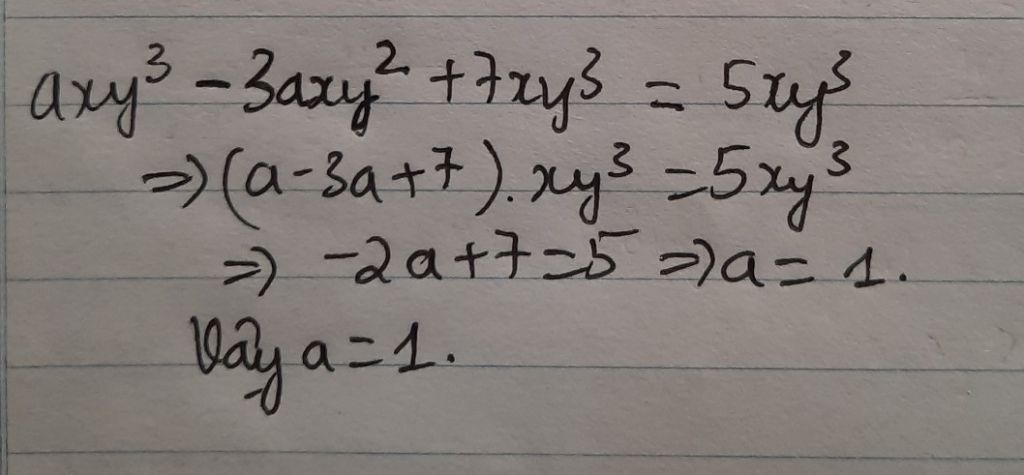 axy³ - 3axy² + 7xy³ = 5xy³
⇒ (a - 3a + 7). xy³ = 5xy³
⇒ -2a + 7 = 5 ⇒ a = 1.
Vậy a = 1.